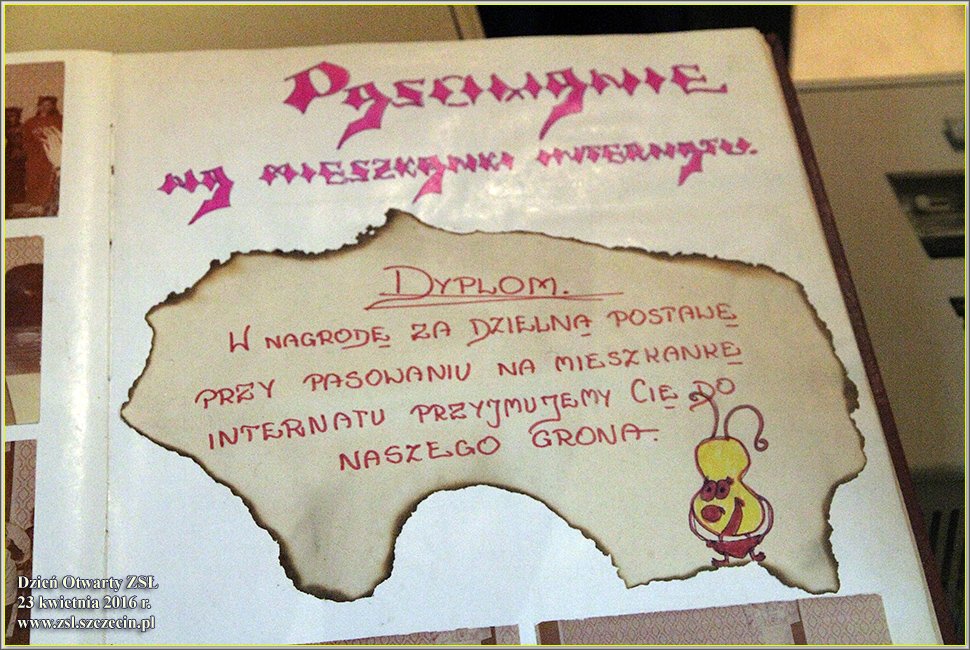 Pasowanie
na mieszkanki internatu.
DYPLOM.
W NAGRODĘ ZA DZIELNĄ POSTAWĘ
PRZY PASOWANIU NA MIESZKANKĘ
INTERNATU PRZYJMUJEMY CIĘ DO
NASZEGO GRONA.
Dzień Otwarty ZSŁ
23 kwietnia 2016 r.
www.zsl.szczecin.pl